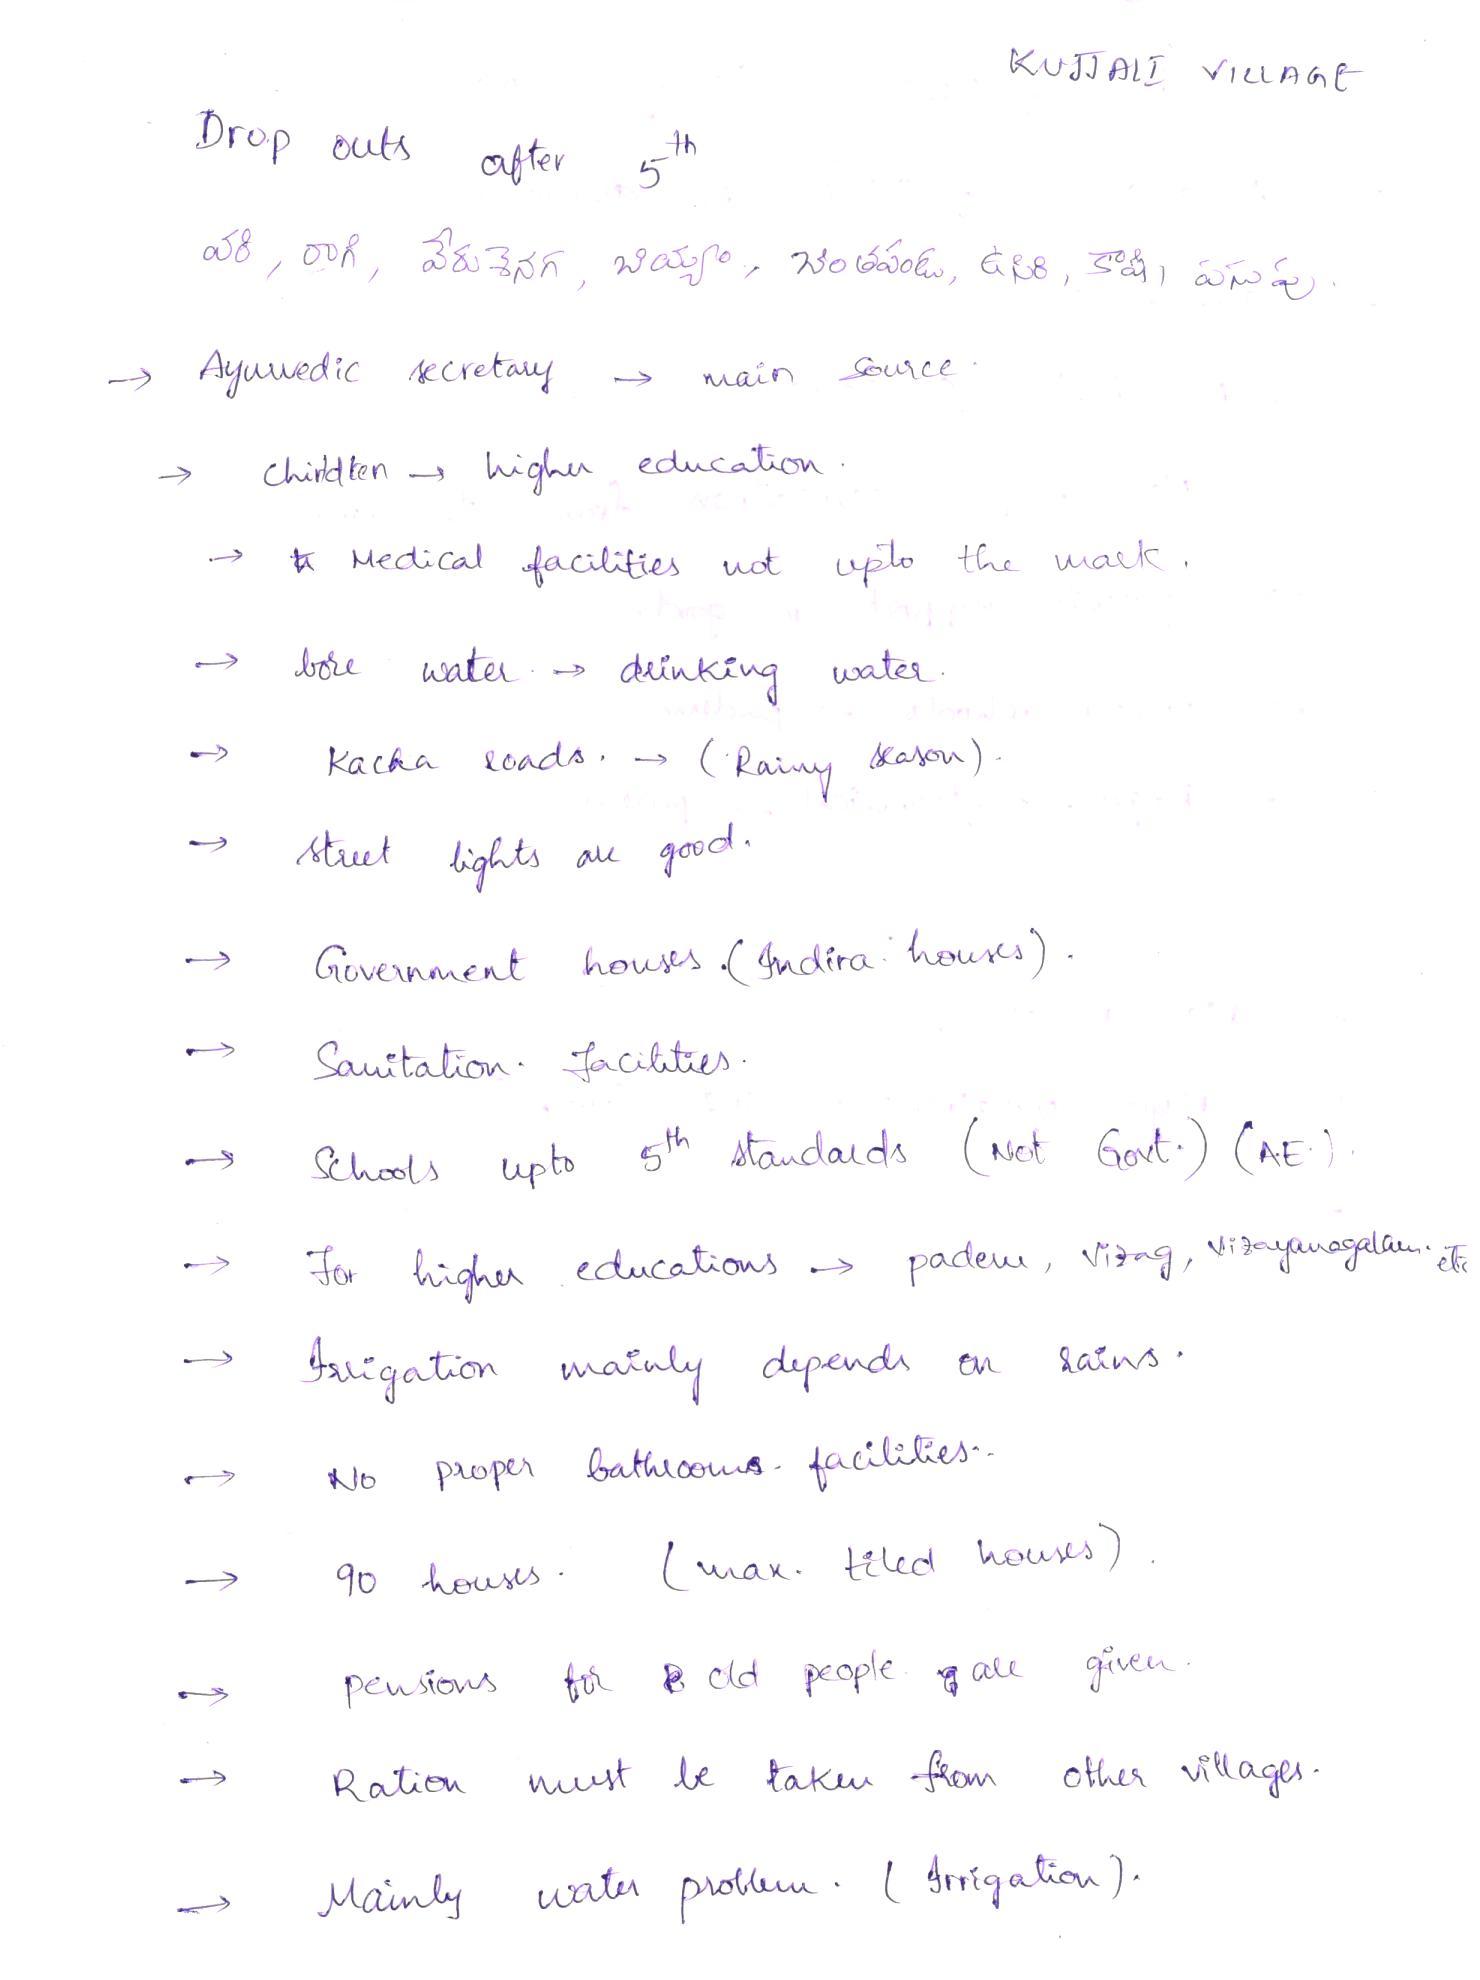 KUJJALI VILLAGE
Drop outs after 5th
వరి, రాగి, వేరుశెనగ, బియ్యం, చింతపండు, ఉసిరి, కాఫీ, పసుపు.
→ Ayurvedic secretary → main source.
→ Children → higher education.
→ Medical facilities not upto the mark.
→ bore water → drinking water.
→ Kacha roads. → (Rainy season).
→ street lights are good.
→ Government houses. (Indira houses).
→ Sanitation. facilities.
→ Schools upto 5th standards (Not Govt.) (A.E.).
→ For higher educations → paderu, Vizag, Vizayanagalam. etc
→ Irrigation mainly depends on rains.
→ No proper bathrooms. facilities..
→ 90 houses. (max. tiled houses).
→ pensions for old people are given.
→ Ration must be taken from other villages.
→ Mainly water problem. (Irrigation).